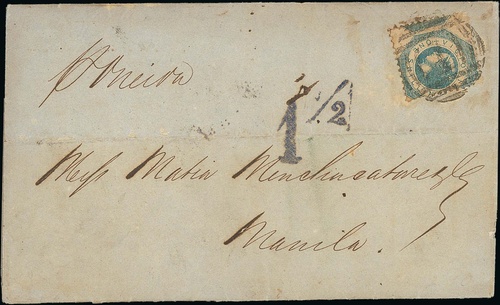 p Oneida
1 1/2
Mess Matia Menchacatorre & Co
Manila.